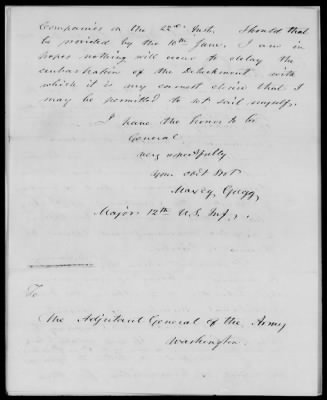 Companies on the 22nd Inst. Should that
be provided by the 10th June, I am in
hopes nothing will occur to delay the
embarkation of the Detachment with
which it is my earnest desire that I
may be permitted to set sail myself.
I have the honor to be
General
very respectfully
Your obdt Svt
Maxcy Gregg,
Major 12th U.S. Inf.
To
The Adjutant General of the Army
Washington.